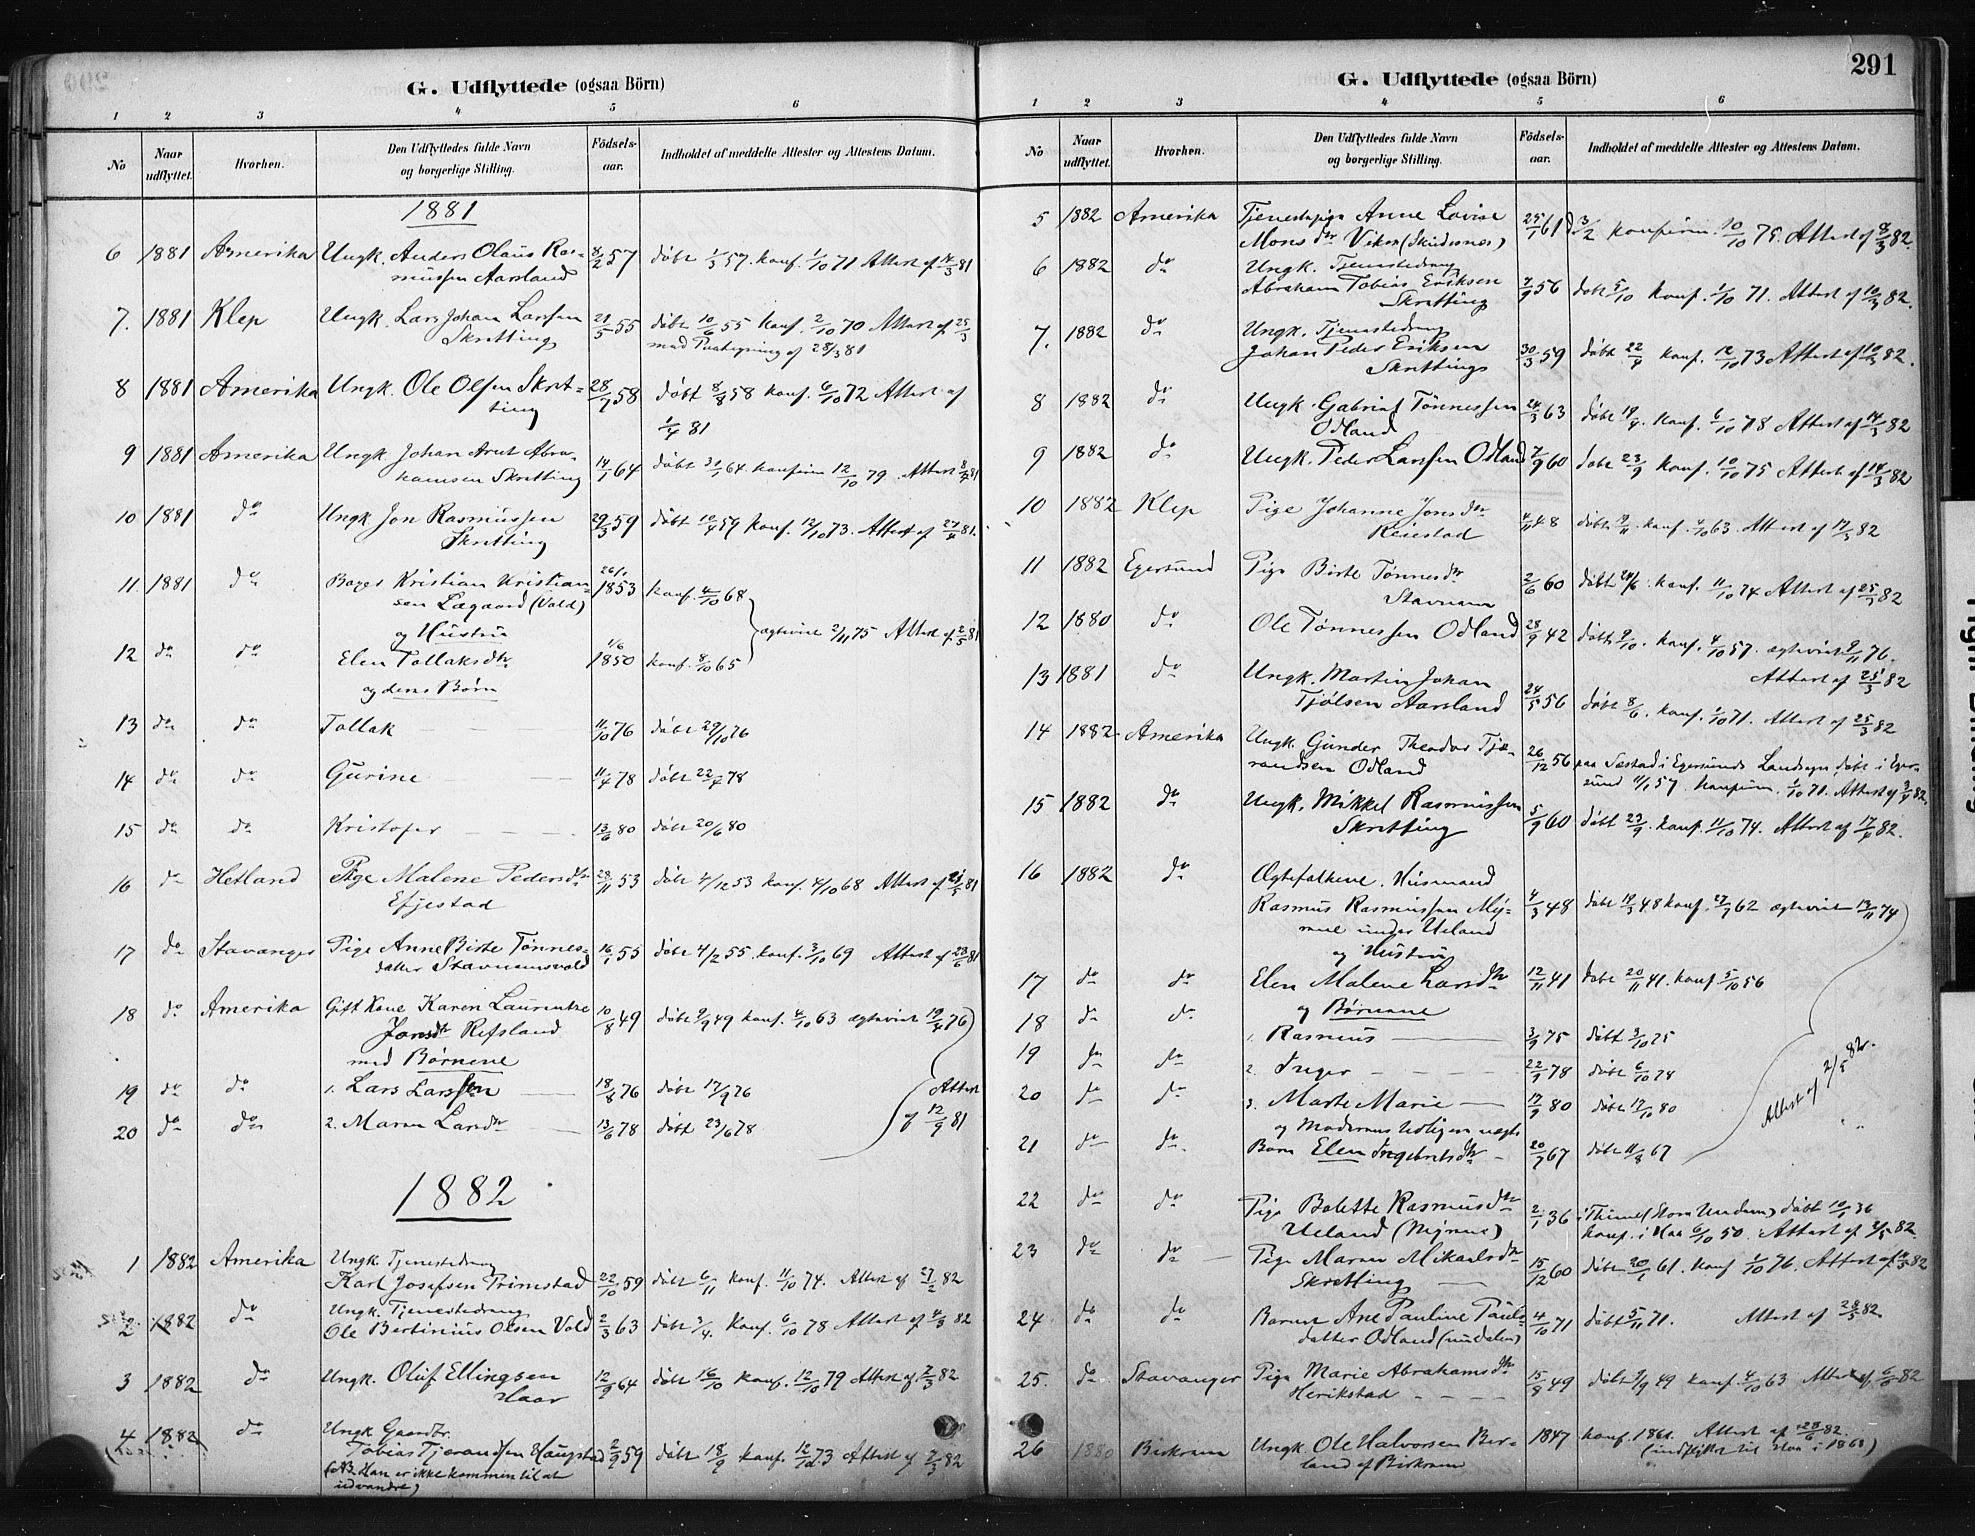 G. Udflyttede (ogsaa Börn)
1 2 3 4 5 6
No Naar udflyttet. Hvorhen. Den Udflyttedes fulde Navn og borgerlige Stilling. Födsels-aar. Indholdet af meddelte Attester og Attestens Datum.
1881
6 1881 Amerika Ungk. Anders Olaus Ras- 8/2 57 döbt 1/3 57. konf. 1/10 71 Attest af 14/3 81
mussen Aarsland
7. 1881 Klep Ungk. Lars Johan Larssen 21/5 55 döbt 10/6 55 konf. 2/10 70 Attest af 25/3
Skretting med Paategning af 28/3 81
8 1881 Amerika Ungk. Ole Olsen Skret- 28/7 58 döbt 8/8 58 konf. 6/10 72 Attest af
ting 1/4 81
9 1881 Amerika Ungk. Johan Arnt Abra- 14/1 64 döbt 30/1 64. konfirm 12/10 79. Attest 8/4 81
hamsen Skretting
10 1881 do Ungk Jon Rasmussen 29/3 59 döbt 10/4 59 konf. 12/10 73. Attest af 27/4 81.
Skretting
11. 1881 do Kristian Kristian- 26/1 1853 konf. 4/10 68
sen Lægaard (Vold)
og Hustru ægteviet 2/11 75 Attest af 2/5 81
12 do do Elen Tollaksdtr 1/6 1850 konf. 8/10 65
og deres Børn
13 do do Tollak 11/10 76 döbt 29/10 76
14 do do Gurine 11/4 78 döbt 22/4 78
15 do do Kristofer 13/6 80 döbt 20/6 80
16 do Hetland Pige Malene Pedersdtr 28/11 53 döbt 4/12 53 konf. 4/10 68 Attest af 21/5 81
Efjestad
17 do Stavanger Pige Anne Birte Tønnes- 16/1 55 döbt 4/2 55. konf. 3/10 69 Attest af 23/6 81
datter Stavnemsvold
18 do Amerika Gift Kone Karen Laurentze 10/8 49 döbt 2/9 49 konf. 4/10 63 ægteviet 19/4 76
Jonsdtr Refsland
med Børnene
19 do do 1. Lars Larssen 18/8 76 döbt 17/9 76 Attest
20 do do 2. Maren Larsdtr 13/6 78 döbt 23/6 78 af 12/9 81
1882
1 1882 Amerika Ungk Tjenestedreng
Karl Josefsen Primestad 22/10 59 döbt 6/11 konf. 11/10 74. Attest af 27/2 82
2 1882 do Ungk. Tjenestedreng
Ole Bertinius Olsen Vold 2/3 63 döbt 3/4. konf. 6/10 78 Attest af 4/3 82
3 1882 do Ungk. Oluf Ellingsen 12/9 64 döbt 16/10 konf. 12/10 79 Attest af 7/3 82
Haar
4 1882 do Ungk Gaardbr.
Tobias Tjerandsen Haugstad 2/9 59 döbt 18/9 konf. 12/10 73 Attest af 7/3 82
(NB. Han er ikke kommen til at
udvandre)
291
G. Udflyttede (ogsaa Börn)
1 2 3 4 5 6
No Naar udflyttet. Hvorhen. Den Udflyttedes fulde Navn og borgerlige Stilling. Födsels-aar. Indholdet af meddelte Attester og Attestens Datum.
5 1882 Amerika Tjenestepige Anne Lovise 25/1 61 d. 3/2 konfirm. 10/10 75. Attest af 8/3 82.
Monsdtr Viken (Skudesnes)
6 1882 do Ungk. Tjenestedreng
Abraham Tobias Eriksen 7/9 56 döbt 5/10 konf. 1/10 71. Attest af 10/3 82.
Skretting
7. 1882 do Ungk. Tjenestedreng
Johan Peder Eriksen 30/3 59 döbt 22/4 konf. 12/10 73 Attest af 10/3 82.
Skrettings
8 1882 do Ungk. Gabriel Tönnessen 24/3 63 döbt 19/4. konf. 6/10 78 Attest af 14/3 82
Odland
9 1882 do Ungk. Peder Larssen Odland 7/9 60 döbt 23/9 konf. 10/10 75 Attest af 14/3 82
10 1882 Klep Pige Johanne Jonsdtr 4/11 48 konf. 4/10 63. Attest af 17/3 82
Reiestad
11 1882 Egersund Pige Birte Tønnesdtr 2/6 60 döbt 24/6. konf. 11/10 74 Attest af 25/3 82
Stavnem
12 1880 do Ole Tønnessen Odland 28/9 42 döbt 9/10. konf. 4/10 57. ægteviet 9/11 76.
Attest af 25/3 82
13 1881 do Ungk. Martin Johan
Tjølsen Aarsland 24/5 56 döbt 8/6. konf. 1/10 71. Attest af 25/3 82
14 1882 Amerika Ungk. Gunder Theodor Tje- 26/12 56 paa Sæstad i Egersunds Landsogn, döbt i Eger-
randsen Odland sund 11/1 57. Konfirm. 1/10 71. Attest af 3/4 82.
15 1882 do Ungk. Mikkel Rasmussen 5/9 60 döbt 23/9. konf. 11/10 74. Attest af 17/4 82.
Skretting
16 1882 do Ægtefolkene. Husmand
Rasmus Rasmussen Myr- 4/3 48 döbt 19/3 48 konf. 27/9 62 ægteviet 13/11 74
mue under Ueland
og Hustru
17 do do Elen Malene Larsdtr 12/11 41 döbt 20/11 41. konf 5/10 56
og Børnene
18 do do 1. Rasmus 3/9 75 döbt 3/10 75
19 do do 2. Inger 22/9 78 döbt 6/10 78
20 do do 3. Marte Marie 17/9 80 döbt 17/10 80 Attest af 2/5 82.
og Moderens tidligere uægte
21 do do Barn Elen Ingebretsdtr 20/7 67 döbt 11/8 67
22 do do Pige Bolette Rasmusdtr 2/1 36 i Thime (Storn Undem) döbt 10/1 36
Ueland (Myrmue) konf. i Haa 6/10 50. Attest af 2/5 82
23 do do Pige Maren Mikaelsdtr 15/12 60 döbt 20/1 61. konf 1/10 76. Attest af 82
Skretting
24 do do Barnet Ane Pauline Pauls- 4/10 71 döbt 5/11 71. Attest af 28/5 82
datter Odland (undalen)
25. do Stavanger Pige Marie Abrahamsdtr 15/8 49 döbt 9/9 49 konf. 4/10 63 Attest af 6/6 82
Herikstad
26 1880 Birkrem Ungk. Ole Halvorsen Ber- 1847 konf. 1861. Attest af 28/6 82.
land af Birkrem (indflyttet til Haa i 1868)